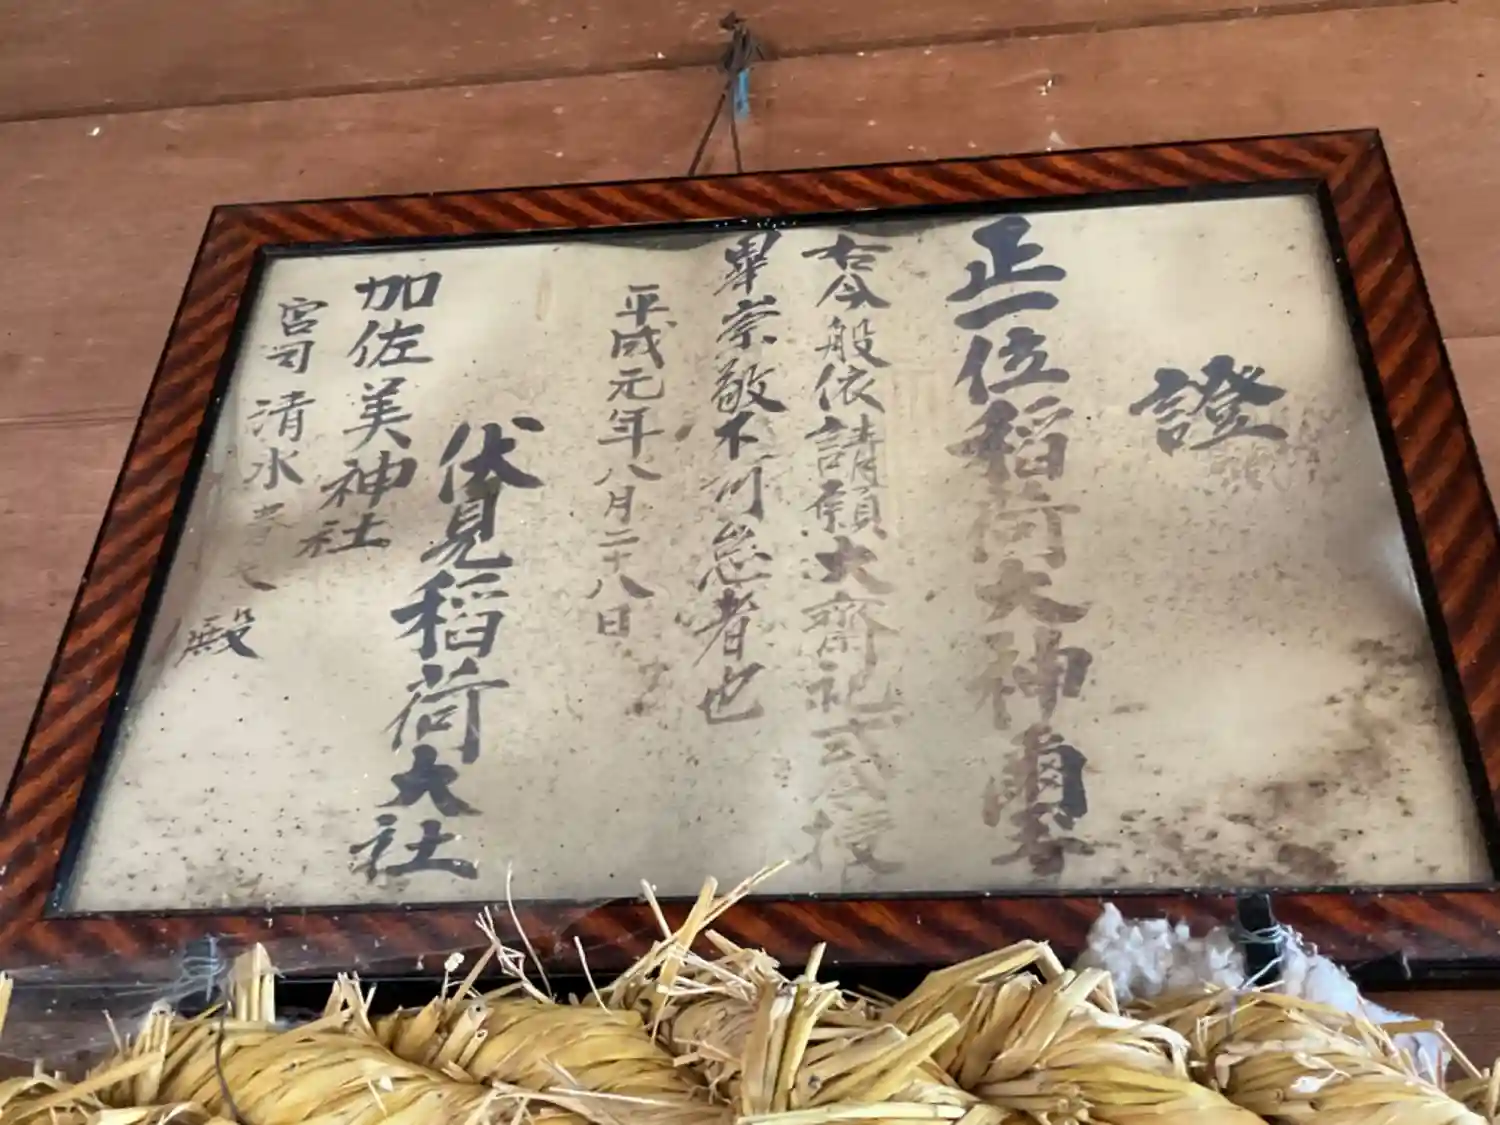 證
正一位稲荷大神璽
右今般依請願大齋祀式授
畢崇敬不可怠者也
平成元年八月二十八日
伏見稲荷大社
加佐美神社
宮司 清水 殿